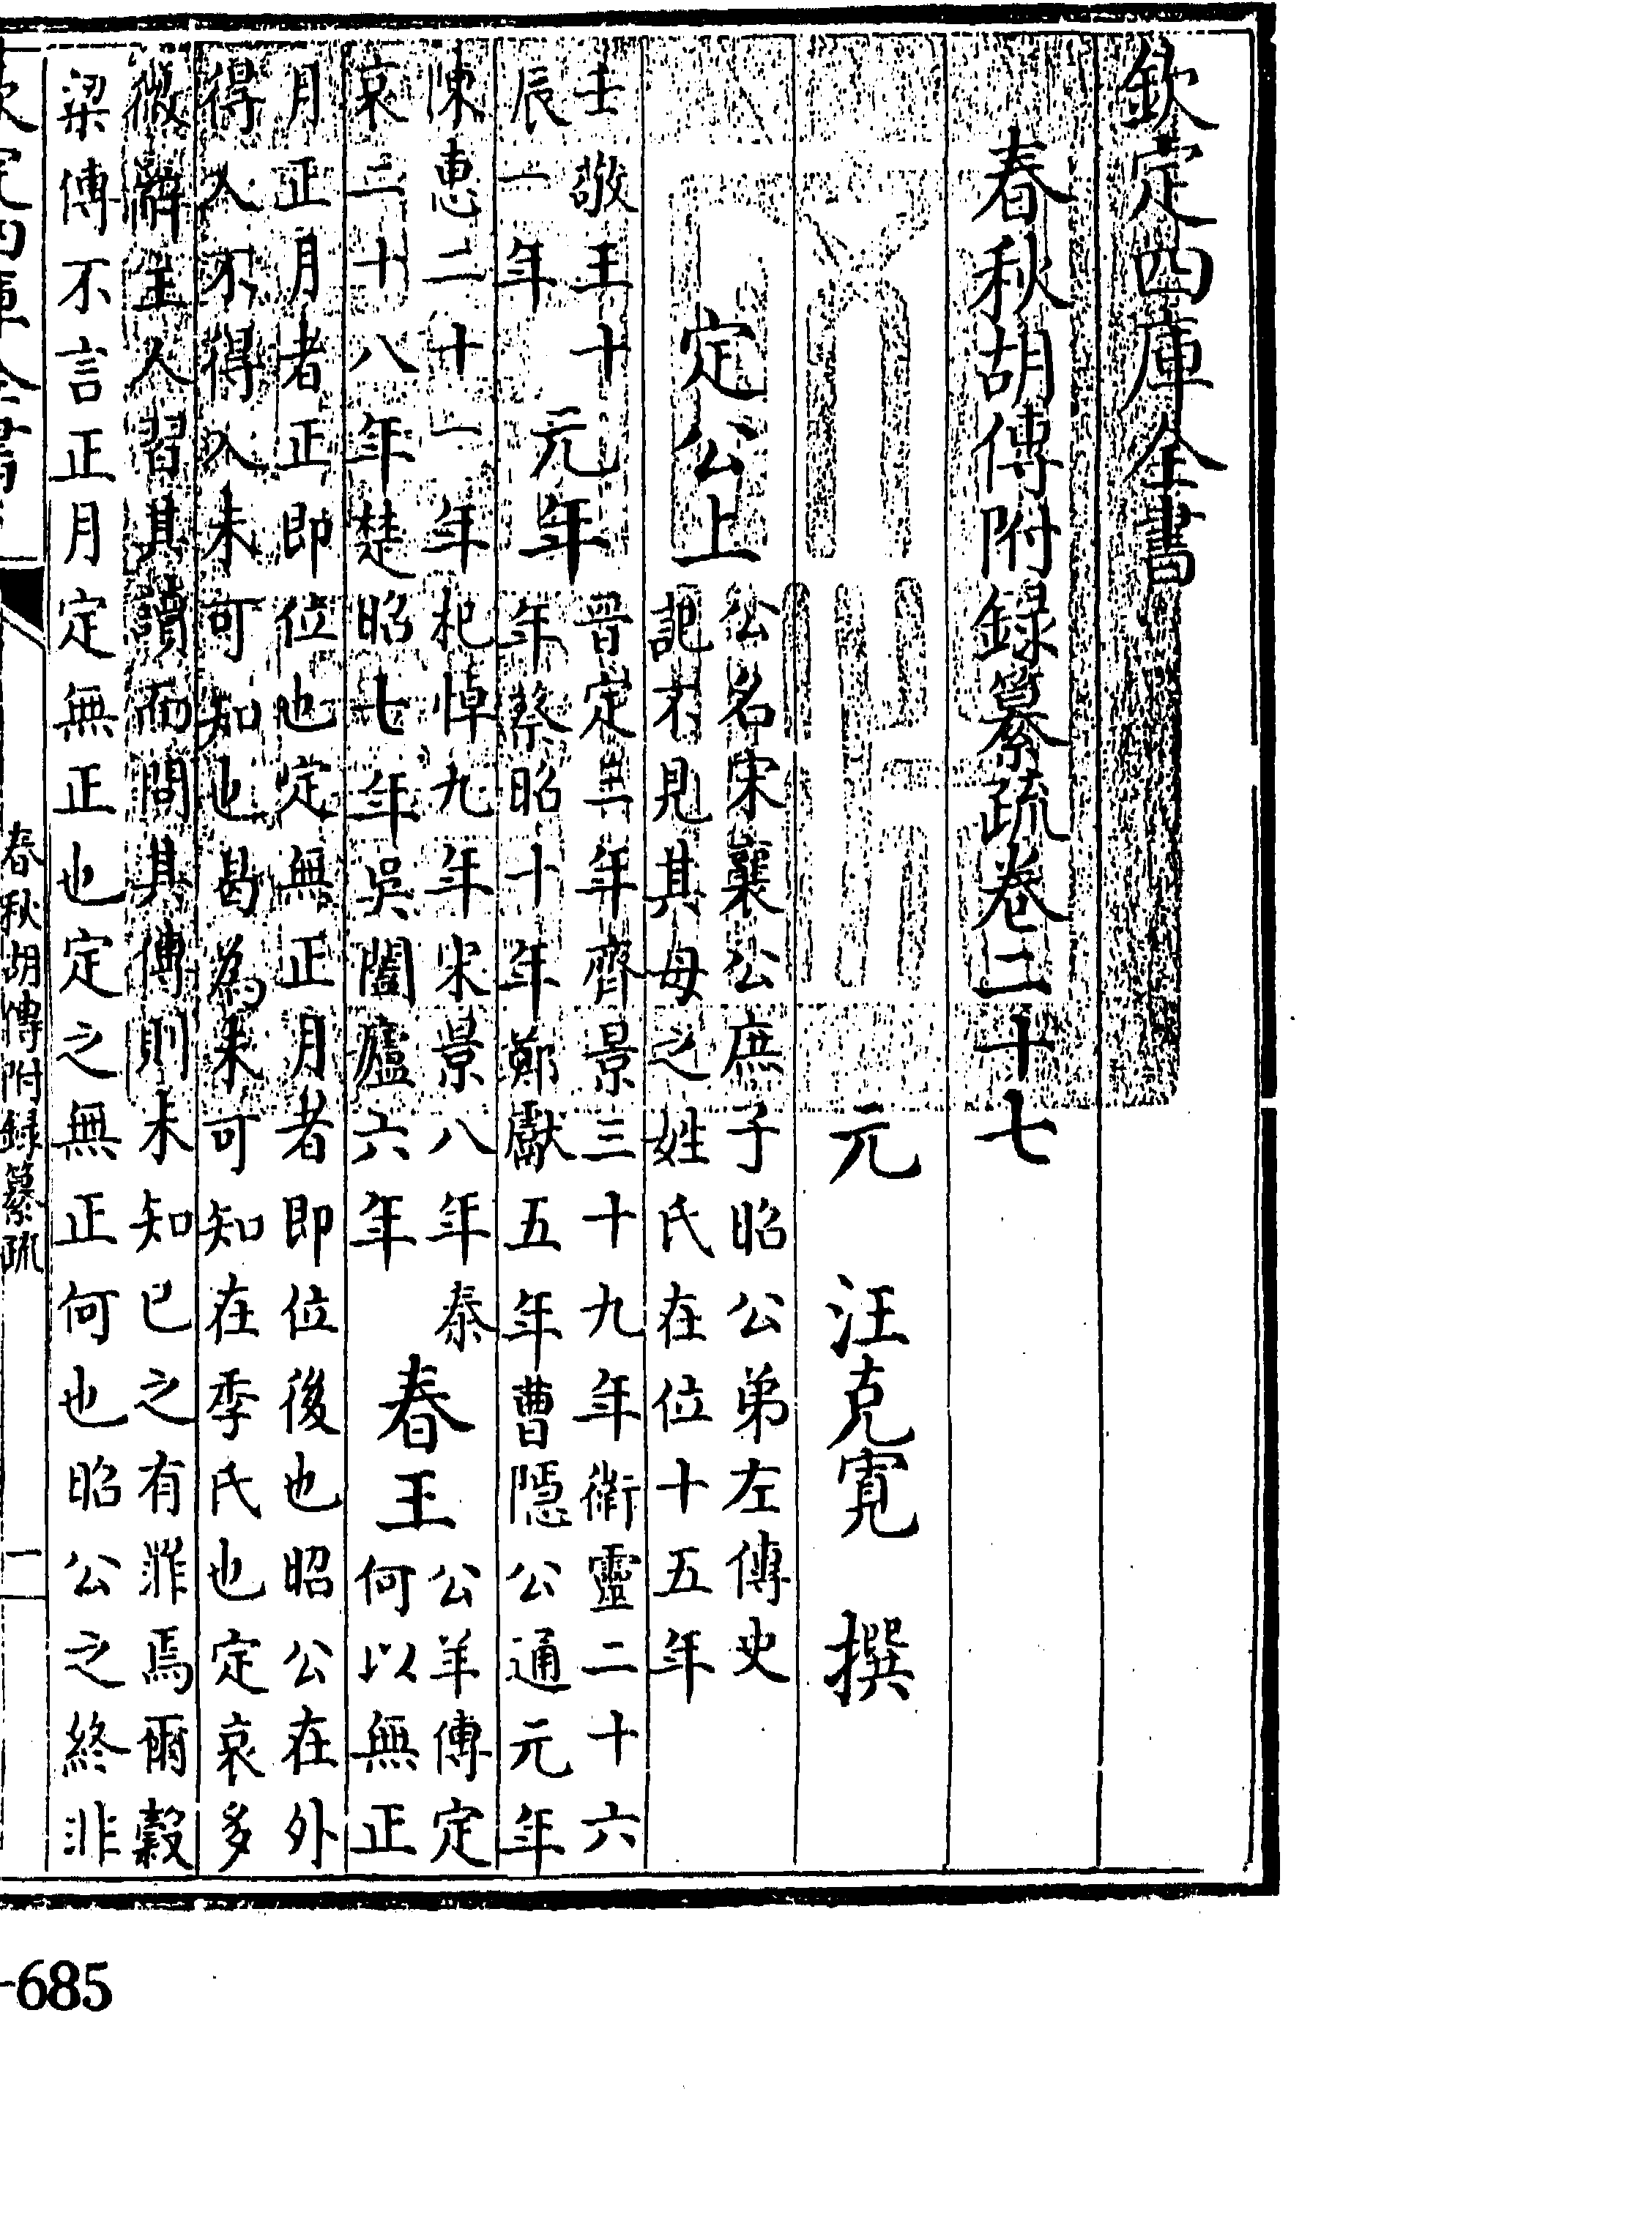 欽定四庫全書
春秋胡傳附錄纂疏卷二十七
元 汪克寬 撰
定公上
公名宋襄公庶子昭公弟左傳史
記不見其母之姓氏在位十五年
壬敬王十
辰一年
元年
晉定三年齊景三十九年衛靈二十六
年蔡昭十年鄭獻五年曹隱公通元年
陳惠二十一年杞悼九年宋景八年秦
哀二十八年楚昭七年吳闔廬六年
春王
公羊傳定
何以無正
月正月者正即位也定無正月者即位後也昭公在外
得入不得入未可知也曷為未可知在季氏也定哀多
微辭主人習其讀而問其傳則未知已之有罪焉爾穀
梁傳不言正月定無正也定之無正何也昭公之終非
春秋胡傳附錄纂疏
一
-685